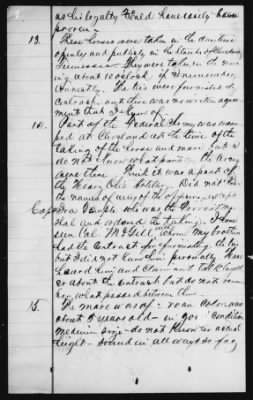 as his loyalty could have easily been
proven.
13. These horses were taken in the daytime
openly and publicly in the town of Cleveland,
Tennessee. They were taken in the mor-
ning about 10 o'clock if I remember
correctly. The ties were furnished by
contract but there was no written agree-
ment that I know of.
14. Part of the Federal Army was camp-
ed at Cleveland at the time of the
taking of the horse and mare but I
do not know what part of the Army
were there. I think it was a part of
the Ohio Artillery. Did not know
the names of any of the officers except
Capt. who was the Provost Mar-
shal and ordered the taking. I have
seen Col. McGell with whom my brother
had the contract for furnishing the ties
but I did not know him personally. Have
heard him and claimant talk togeth-
er about the contract but do not remem-
ber what passed between them.
15. The mare was of a roan color, was
about 5 years old - in good condition
medium size - do not know her actual
height - sound in all ways so far